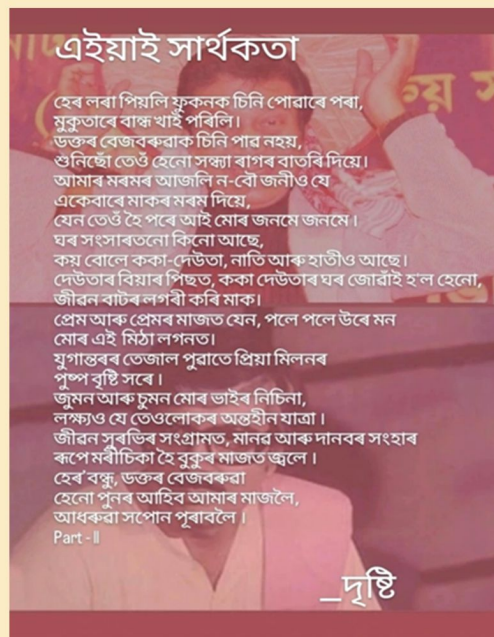 এইয়াই সাৰ্থকতা
হেৰ লৰা পিয়লি ফুকনক চিনি পোৱাৰে পৰা,
মুকুতাৰে বান্ধ খাই পৰিলি।
ডক্তৰ বেজবৰুৱাক চিনি পাব নহয়,
শুনিছোঁ তেওঁ হেনো সন্ধ্যা ৰাগৰ বাতৰি দিয়ে।
আমাৰ মৰমৰ আজলি ন-বৌ জনীও যে
একেবাৰে মাকৰ মৰম দিয়ে,
যেন তেওঁ হৈ পৰে আই মোৰ জনমে জনমে।
ঘৰ সংসাৰতনো কিনো আছে,
কয় বোলে ককা-দেউতা, নাতি আৰু হাতীও আছে।
দেউতাৰ বিয়াৰ পিছত, ককা দেউতাৰ ঘৰ জোৱাঁই হ'ল হেনো,
জীৱন বাটৰ লগৰী কৰি মাক।
প্ৰেম আৰু প্ৰেমৰ মাজত যেন, পলে পলে উৰে মন
মোৰ এই মিঠা লগনত।
যুগান্তৰৰ তেজাল পুৱাতে প্ৰিয়া মিলনৰ
পুষ্প বৃষ্টি সৰে।
জুমন আৰু চুমন মোৰ ভাইৰ নিচিনা,
লক্ষ্যও যে তেওলোকৰ অন্তহীন যাত্ৰা।
জীৱন সুৰভিৰ সংগ্ৰামত, মানৱ আৰু দানবৰ সংহাৰ
ৰূপে মৰীচিকা হৈ বুকুৰ মাজত জ্বলে।
হেৰ' বন্ধু, ডক্তৰ বেজবৰুৱা
হেনো পুনৰ আহিব আমাৰ মাজলৈ,
আধৰুৱা সপোন পূৰাবলৈ।
Part - II
_দৃষ্টি